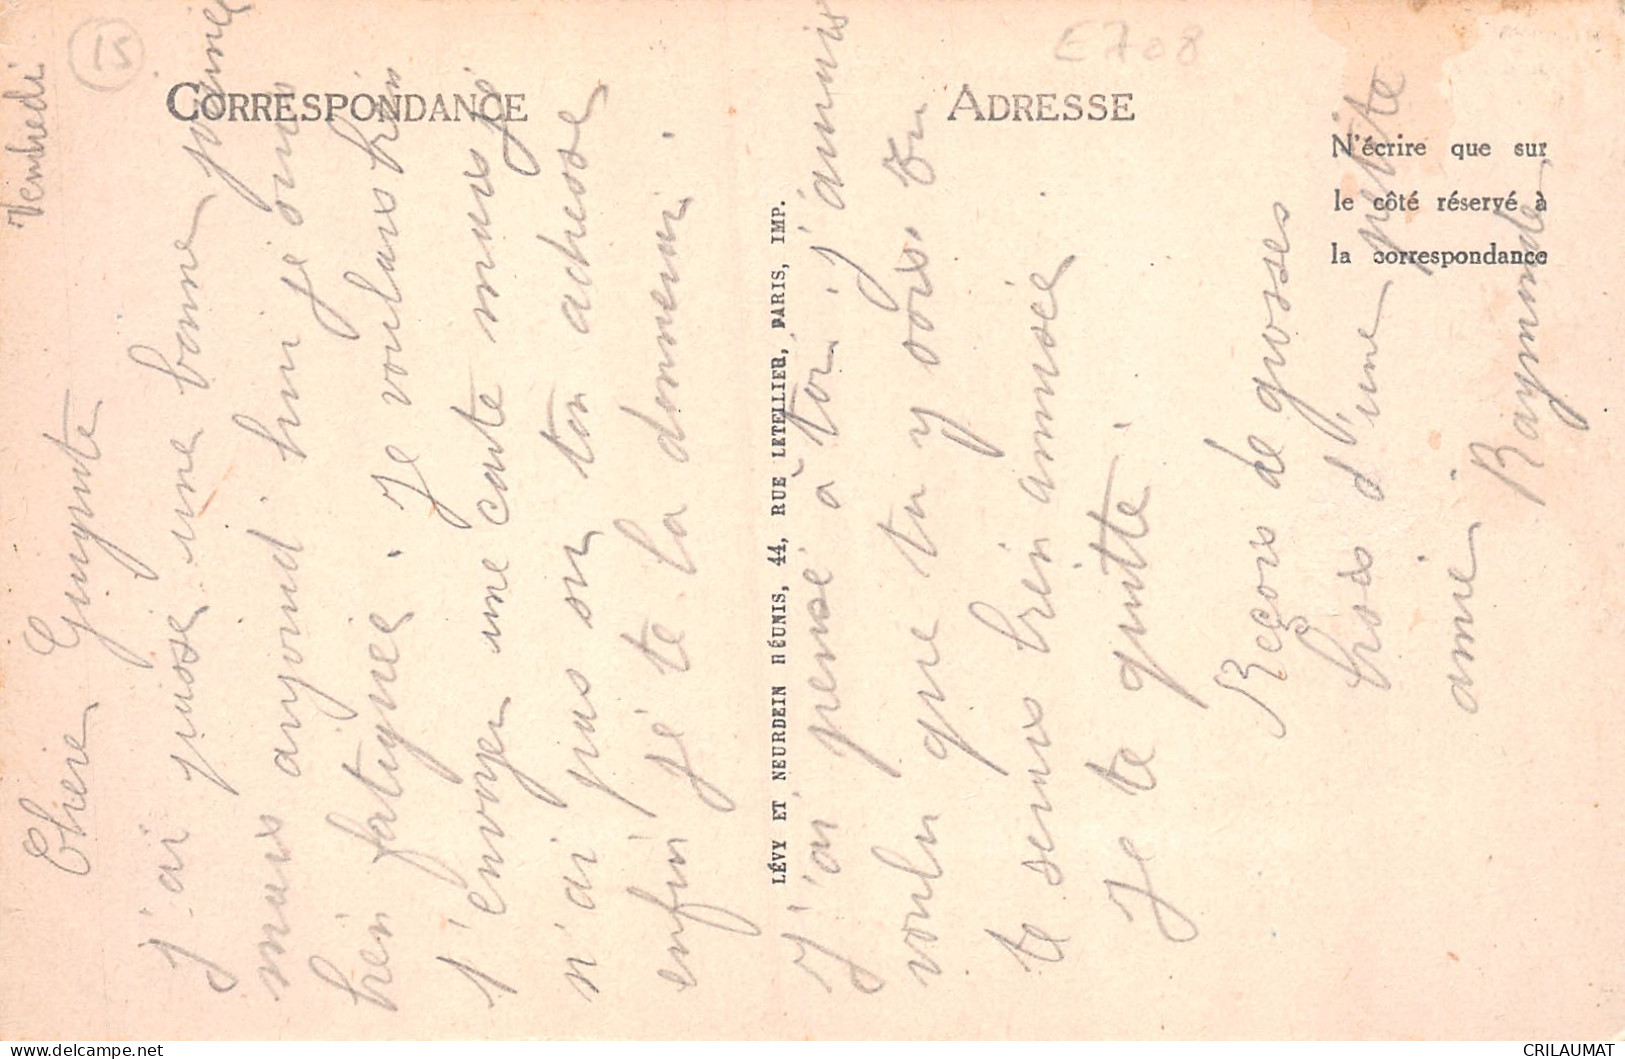 15
E708
CORRESPONDANCE
ADRESSE
N'écrire que sur
le côté réservé à
la correspondance
LÉVY ET NEURDEIN RÉUNIS, 44, RUE LETELLIER, PARIS, IMP.
Vendredi
Chère Guiguite
J'ai passé une bonne journée
mais aujourd'hui je suis
bien fatiguée. Je voulais bien
t'envoyer une carte mais je
n'ai pas eu ton adresse
enfin je te la donnerai.
J'ai pensé à toi, j'aurais
voulu que tu y sois. Tu
te serais bien amusée
Je te quitte.
Reçois de grosses
bises d'une petite
amie Raymonde
CRILAUMAT